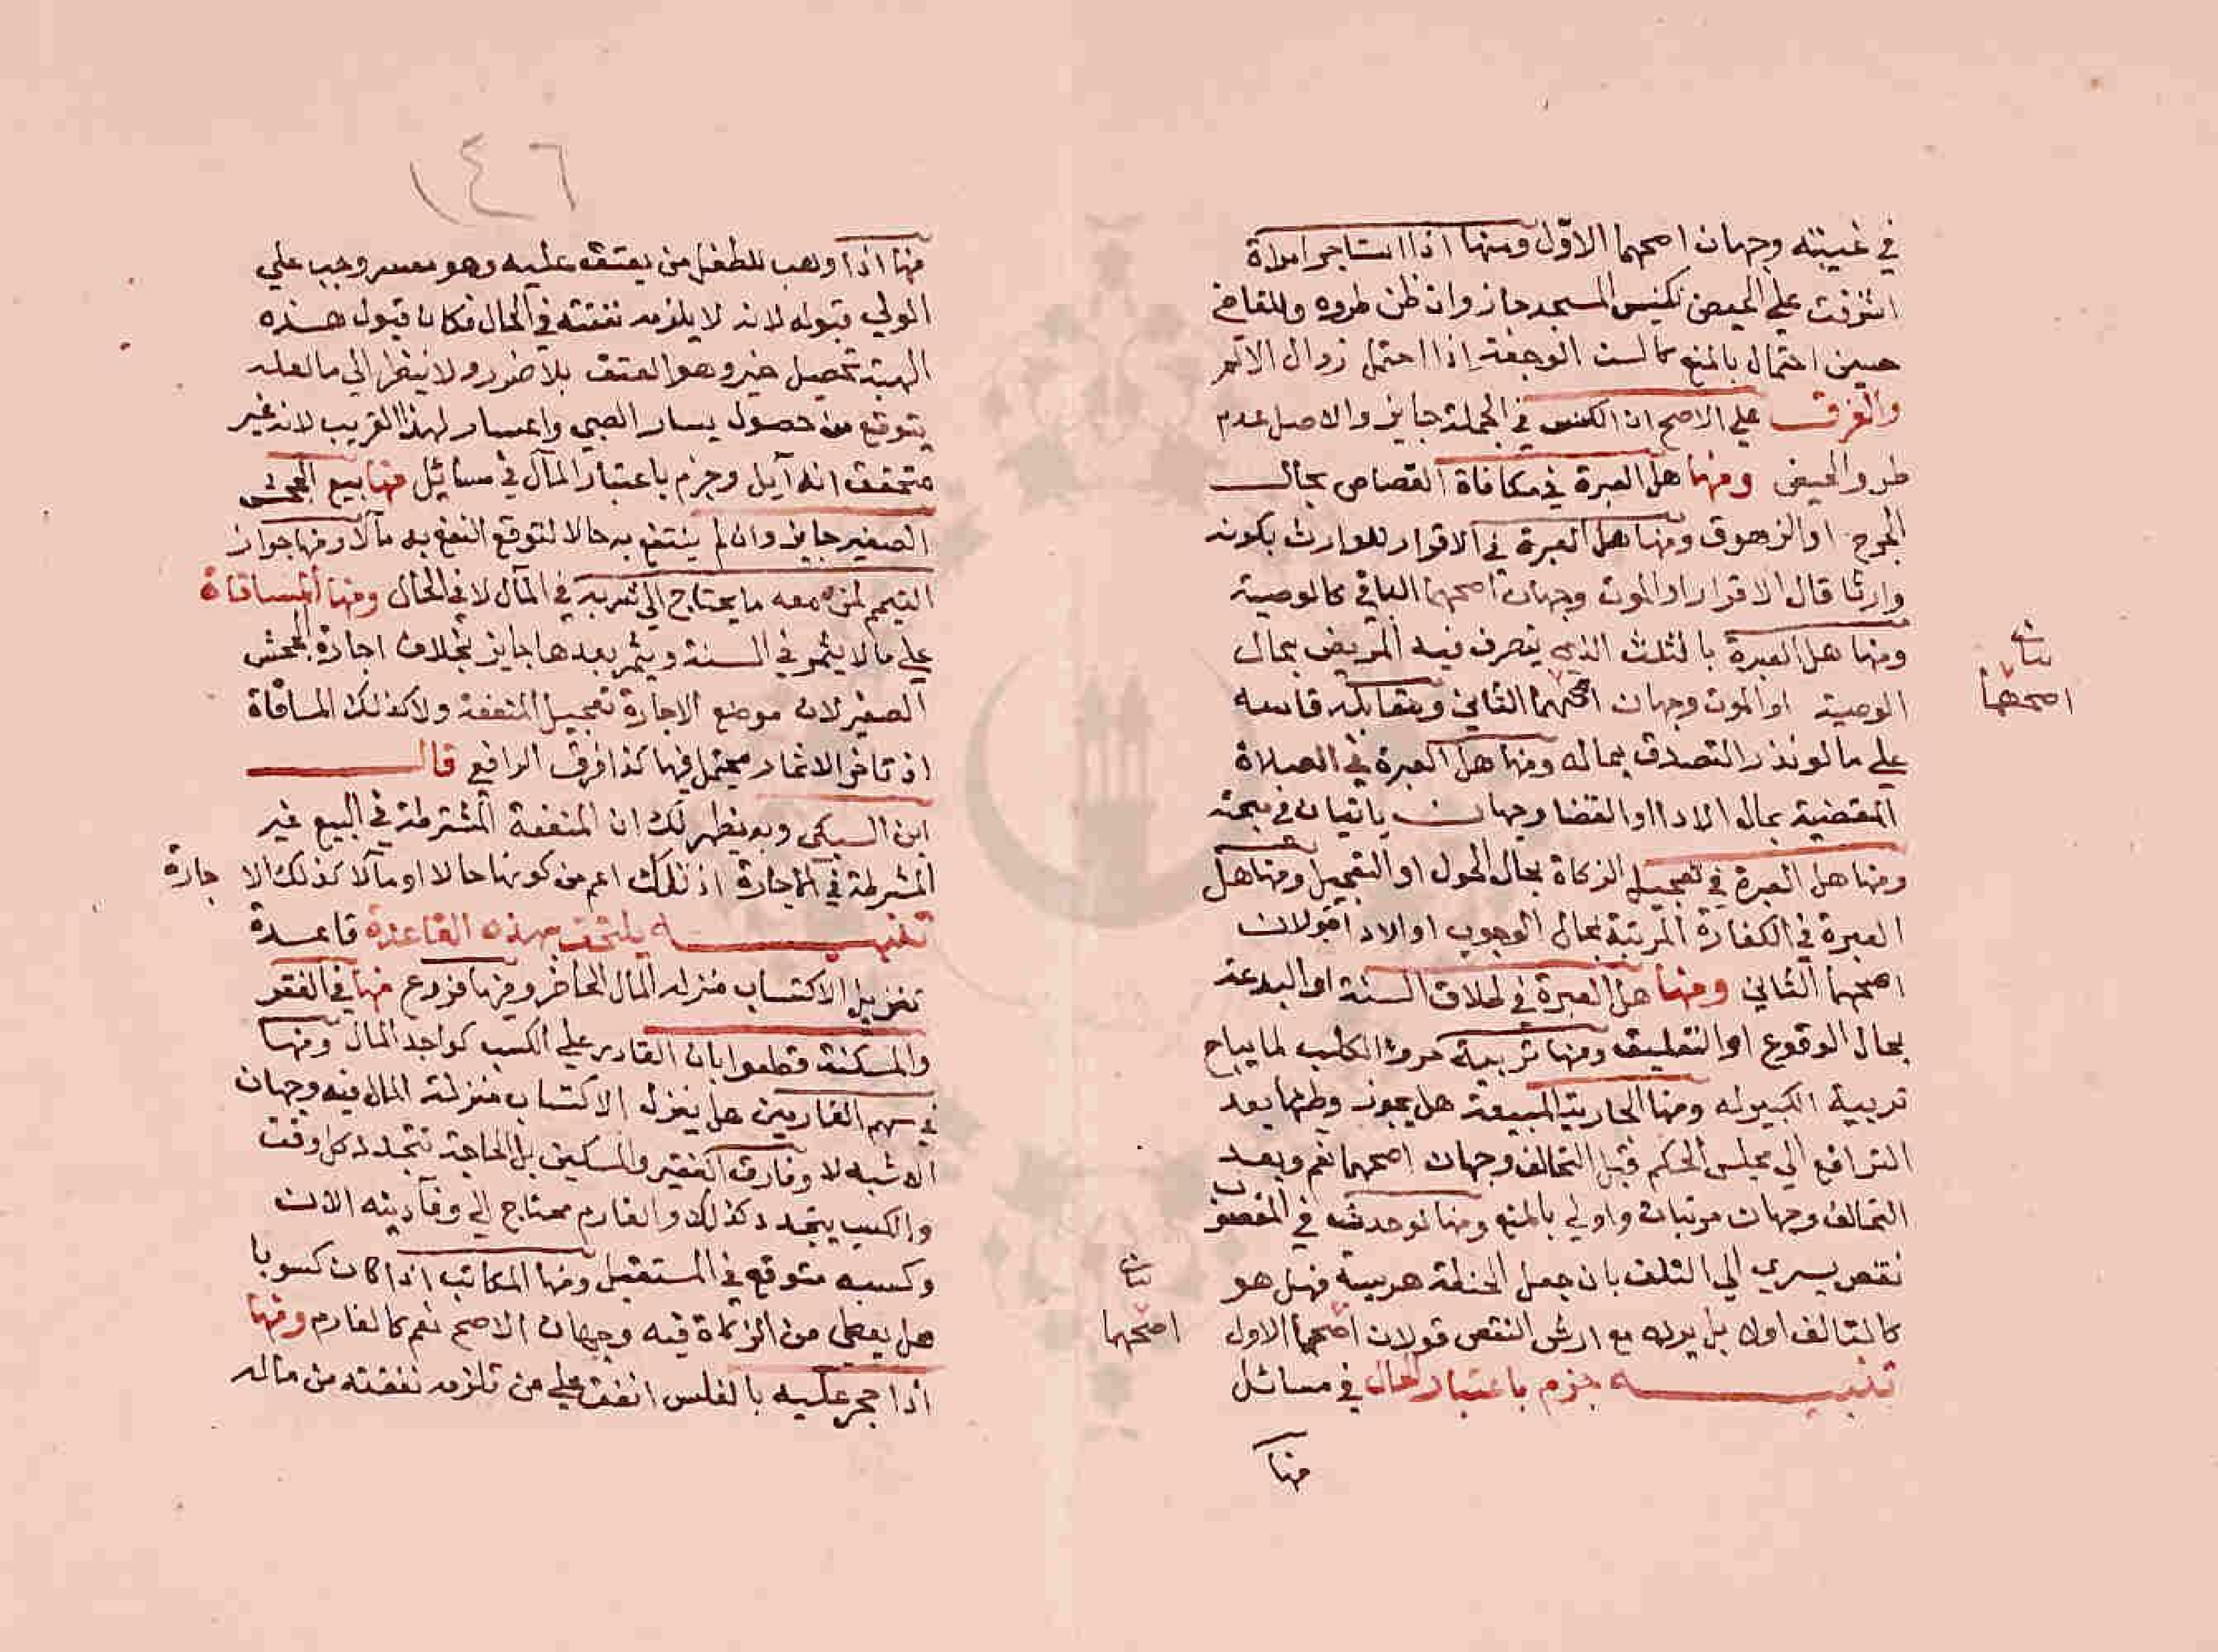 في غيبته وجهان اصحهما الاول ومنها اذا استاجر امراة
اشرفت على الحيض لكنس المسجد جاز وان ظن طروه وللقاضي
حسين احتمال بالمنع كالسن الوجعة اذا احتمل زوال الالم
والفرق على الاصح ان الكنس في الجملة جايز والاصل عدم
طرو الحيض ومنها هل العبرة في مكافاة القصاص بحال
الجرح او الزهوق ومنها هل العبرة في الاقرار للوارث بكونه
وارثا قال الاقرار او الموت وجهان اصحهما الثاني كالوصية
ومنها هل العبرة بالثلث الذي يتصرف فيه المريض بحال
الوصية او الموت وجهان اصحهما الثاني ومقابله قاسه
على ما لو نذر التصدق بماله ومنها هل العبرة في الصلاة
المقضية بحال الادا او القضا وجهان ياتيان في مبحثه
ومنها هل العبرة في تعجيل الزكاة بحال الحول او التعجيل ومنها هل
العبرة في الكفارة المرتبة بحال الوجوب او الادا قولان
اصحهما الثاني ومنها هل العبرة في طلاق السنة او البدعة
بحال الوقوع او التعليق ومنها تربية جرو الكلب لما يباح
تربية الكبير له ومنها الجارية المبيعة هل يجوز وطئها بعد
الترافع الى مجلس الحكم وقبل التحالف وجهان اصحهما نعم وبعد
التحالف وجهان مرتبان واولى بالمنع ومنها لو حدث في المغصوب
نقص يسري الى التلف بان جعل الحنطة هريسة فهل هو
كالتالف اولا بل يرده مع ارش النقص قولان اصحهما الاول
تنبيه جزم باعتبار الحال في مسائل
منها
بيان
اصحهما
بيان
اصحهما
١٤٦
منها اذا وهب للطفل من يعتق عليه وهو معسر وجب علي
الولي قبوله لانه لا يلزمه نفقته في الحال فكان قبول هذه
الهبة تحصيل خير وهو العتق بلا ضرر ولا ينظر الي ما لعله
يتوقع من حصول يسار الصبي واعسار لهذا القريب لانه غير
متحقق انه آيل وجزم باعتبار المآل في مسائل منها بيع الجحش
الصغير جايز وان لم ينتفع به حالا لتوقع النفع به مآلا ومنها جواز
التيمم لمن معه ما يحتاج الي شربه في المآل لا في الحال ومنها المساقاة
علي ما لا يثمر في السنة ويثمر بعدها جايز بخلاف اجارة الجحش
الصغير لان موضع الاجارة تعجيل المنفعة ولا كذلك المساقاة
اذ تاخر الاثمار محتمل فيها كذا فرق الرافعي قال
ابن السبكي وبه يظهر لك ان المنفعة المشترطة في البيع غير
المشرطة في الاجارة اذ تلك اعم من كونها حالا او مآلا كذلك الاجارة
تنبيه يلتحق بهذه القاعدة قاعدة
تنزيل الاكتساب منزلة المال الحاضر وفيها فروع منها في الفقر
والمسكنة قطعوا بان القادر علي الكسب كواجد المال ومنها
في سهم الغارمين هل ينزل الاكتساب منزلة المال فيه وجهان
الاشبه لا وفارق الفقير والمسكين بل الحاجة تتجدد كل وقت
والكسب يتجدد كذلك والغارم محتاج الي وفا دينه الان
وكسبه متوقع في المستقبل ومنها المكاتب اذا كان كسوبا
هل يعطي من الزكاة فيه وجهان الاصح نعم كالغارم ومنها
اذا حجر عليه بالفلس انفق علي من تلزمه نفقته من ماله